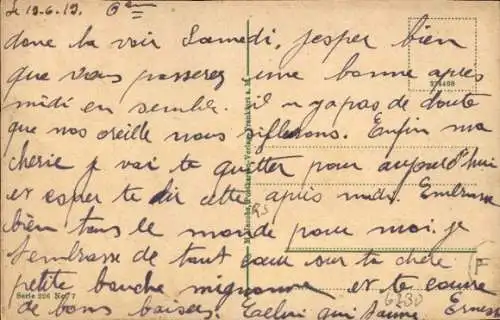 le 19.6.19. 6em
donc la voir Samedi, j'esper bien
que vous passerez une bonne apres
midi en semble. il n y a pas de doute
que nos oreille nous siflerons. Enfin ma
cherie je vai te quitter pour aujourd'hui
et esper te dir cette apres midi. Embrasse
bien tous le monde pour moi. je
t'embrasse de tout cœur sur ta chere
petite bouche mignonne et te couvre
de bons baisers. Celui qui t'aime Ernest
Serie 226 No. 7
6230